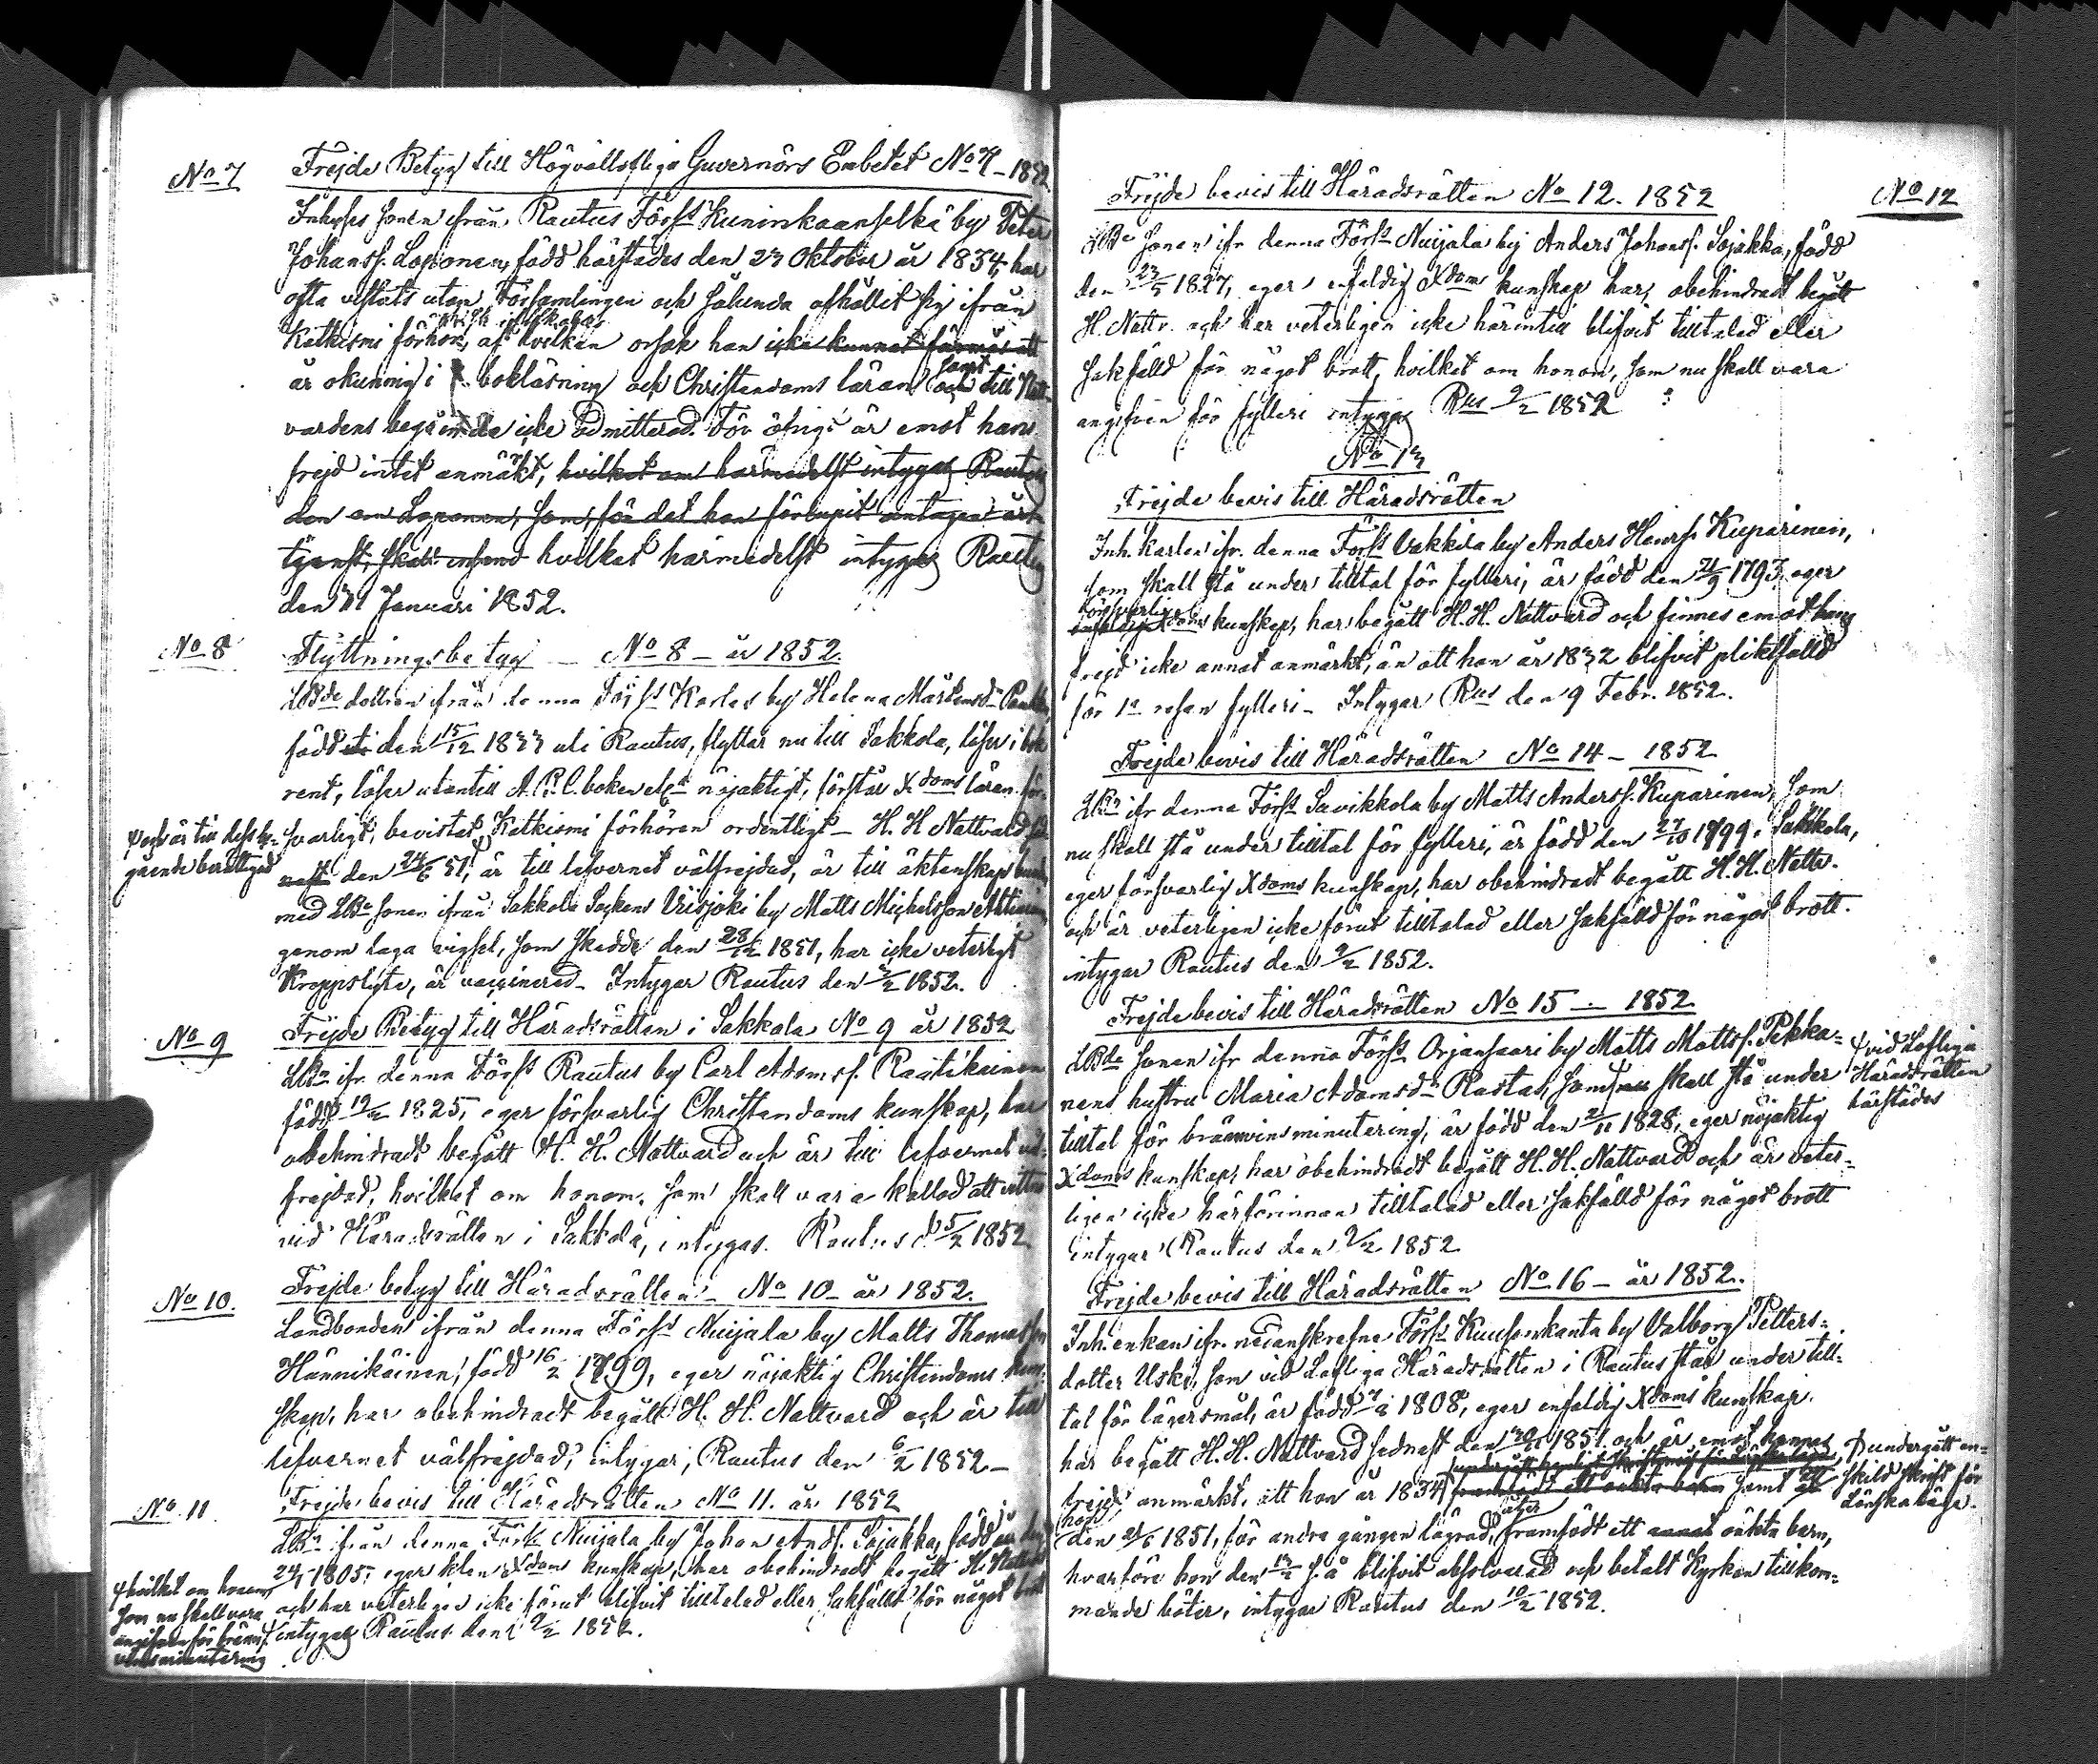 No 7
Frejde Betyg till Högvällofliga Guvernörs Embetet No 7 - 1852
Inhyses sonen ifrån Rautus Förs:s Kuninkaanselkä by Peter
Johanss. Loponen, född härstädes den 23 Oktober år 1834, har
ofta vistats utom Församlingen och sålunda afhållit sig ifrån
Katkismi förhör, af hvilken orsak han icke kunnat
är okunnig i bokläsning och Christendoms läran samt till Natt-
vardens begående icke admitterad. För öfrigt är emot hans
frejd intet anmärkt, hvilket om härmedelst intygas Rautus
den om Loponen, som, för det han förlupit antagen års
tjenst, skall hvilket härmedelst intygas Rautus
den 31 Januari 1852.
No 8
Flyttningsbetyg - No 8 - år 1852.
LBde dottren ifrån denna Förs:s Karles by Helena Mårtensd:r
född den 15/12 1833 uti Rautus, flyttar nu till Sakkola, läser i bok
rent, läser utantill A.B.C. boken nöjaktigt, förstår Xdoms läran för-
svarligt, bevistat Katkismi förhören ordentligt - H. H Nattvard
den 24/6 51, är till lefvernet välfrejdad, är till äktenskap
med LBde sonen ifrån Sakkola Sockens Viisjoki by Matts Michelsson
genom laga vigsel, som skedde den 28/12 1851, har icke veterligt
kroppslyte, är vaccinerad - Intygar Rautus den 2/2 1852.
och är till dess be-
gående berättigad
No 9
Frejde Betyg till Häradsrätten i Sakkola No 9 år 1852
LBn ifr. denna Förs:s Rautus by Carl Adamss. Rautikainen
född 1825, eger försvarlig Christendoms kunskap, har
obehindradt begått H. H. Nattvard och är till lefvernet väl-
frejdad, hvilket om honom, som skall vara kallad att vittna
vid Häradsrätten i Sakkola, intygas. Rautus d. 5/2 1852
No 10.
Frejde betyg till Häradsrätten - No 10 - år 1852.
Landbonden ifrån denna Förs:s Nuijala by Matts Thomasson
Hännikäinen, född 16/2 1799, eger nöjaktig Christendoms kun-
skap, har obehindradt begått H. H. Nattvard och är till
lefvernet välfrejdad, intygar, Rautus den 6/2 1852 -
No 11
Frejde bevis till Häradsrätten No 11. år 1852
LBn ifrån denna Förs:s Nuijala by Johan Ands. Sojakka, född
1805, eger klen Xdoms kunskap, har obehindradt begått H. Nattv.
och har veterligen icke förut blifvit tilltalad eller sakfälld för något brott
intygas Rautus den 9/2 1852.
hvilket om honom
som nu skall vara
angifven för bränn-
vins minutering
No 12
Frejde bevis till Häradsrätten No 12. 1852
LBde sonen ifr denna Förs:s Nuijala by Anders Johanss. Sojakka, född
den 23/5 1827, eger enfaldig Xdoms kunskap har obehindradt begått
H. Nattv. och har veterligen icke härintill blifvit tilltalad eller
sakfälld för något brott, hvilket om honom, som nu skall vara
angifven för fylleri intygas Rus 9/2 1852
No 13
Frejde bevis till Häradsrätten
Inh. karlen ifr. denna Förs:s Vakkila by Anders Henrss. Kuparinen,
som skall stå under tilltal för fylleri, är född den 21/9 1793, eger
försvarlig Xdoms kunskap, har begått H. H. Nattvard och finnes emot hans
frejd icke annat anmärkt, än att han år 1832 blifvit pliktfälld
för 1a resan fylleri - Intygar Rus den 9 Febr. 1852.
Frejde bevis till Häradsrätten No 14 - 1852
LBn ifr denna Förs:s Savikkola by Matts Anderss. Kuparinen, som
nu skall stå under tilltal för fylleri, är född den 27/10 1799 i Sakkola,
eger försvarlig Xdoms kunskap, har obehindradt begått H. H. Nattv.
och är veterligen icke förut tilltalad eller sakfälld för något brott.
intygar Rautus den 9/2 1852.
Frejde bevis till Häradsrätten No 15 - 1852
LBde sonen ifr denna Förs:s Orjansaari by Matts Mattss. Pekka-
nens hustru Maria Adamsd:r Rastas, som nu skall stå under
tilltal för brännvins minutering, är född den 2/11 1828, eger nöjaktig
Xdoms kunskap, har obehindradt begått H. H. Nattvard och är veter-
ligen icke härförinnan tilltalad eller sakfälld för något brott
intygar Rautus den 9/2 1852
vid Lofliga
Häradsrätten
härstädes
Frejde bevis till Häradsrätten No 16 - år 1852.
Inh. enkan ifr. nedanskrefne Förs:s Kuusenkanta by Valborg Petters-
dotter Uski, som vid Lofliga Häradsrätten i Rautus står under till-
tal för lägersmål, är född 1808, eger enfaldig Xdoms kunskap.
har begått H. H. Nattvard sednast den 1851. och är emot hennes
frejd anmärkt, att hon år 1834 framfödt ett oäkta barn samt att
hon den 1851, för andra gången lägrad, åter framfödt ett annat oäkta barn,
hvarföre hon den s. å blifvit absolverad och betalt Kyrkan tillkom-
mande böter, intygar Rautus den 10/2 1852.
undergått en-
skild skrift för
lönskaläge.